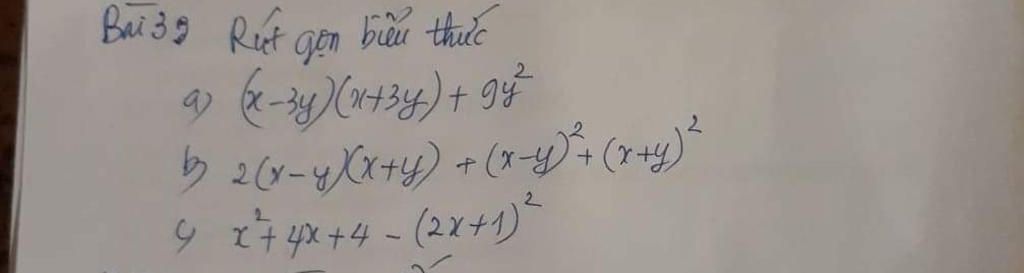 Bài 39 Rút gọn biểu thức
a) (x-3y)(x+3y) + 9y²
b) 2(x-y)(x+y) + (x-y)² + (x+y)²
c) x² + 4x + 4 - (2x+1)²